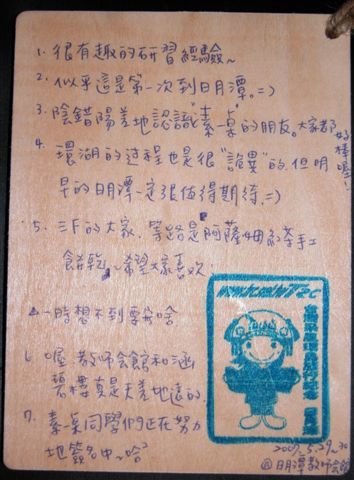 1. 很有趣的研習經驗~
2. 似乎這是第一次到日月潭.=)
3. 陰錯陽差地認識"素一桌"的朋友。大家都好棒喔!
4. 環湖的过程也是很"詭異"的,但明
早的日月潭一定很值得期待.=)
5. 三F的大家,等路是阿薩姆紅茶手工
餅乾~希望大家喜欢.
一時想不到要寫啥
6. 喔 教師会館和涵
碧樓真是天差地遠的.
7. 素一桌同學們正在努力
地簽名中~哈²
2009.5.29~30
@日月潭教師会館